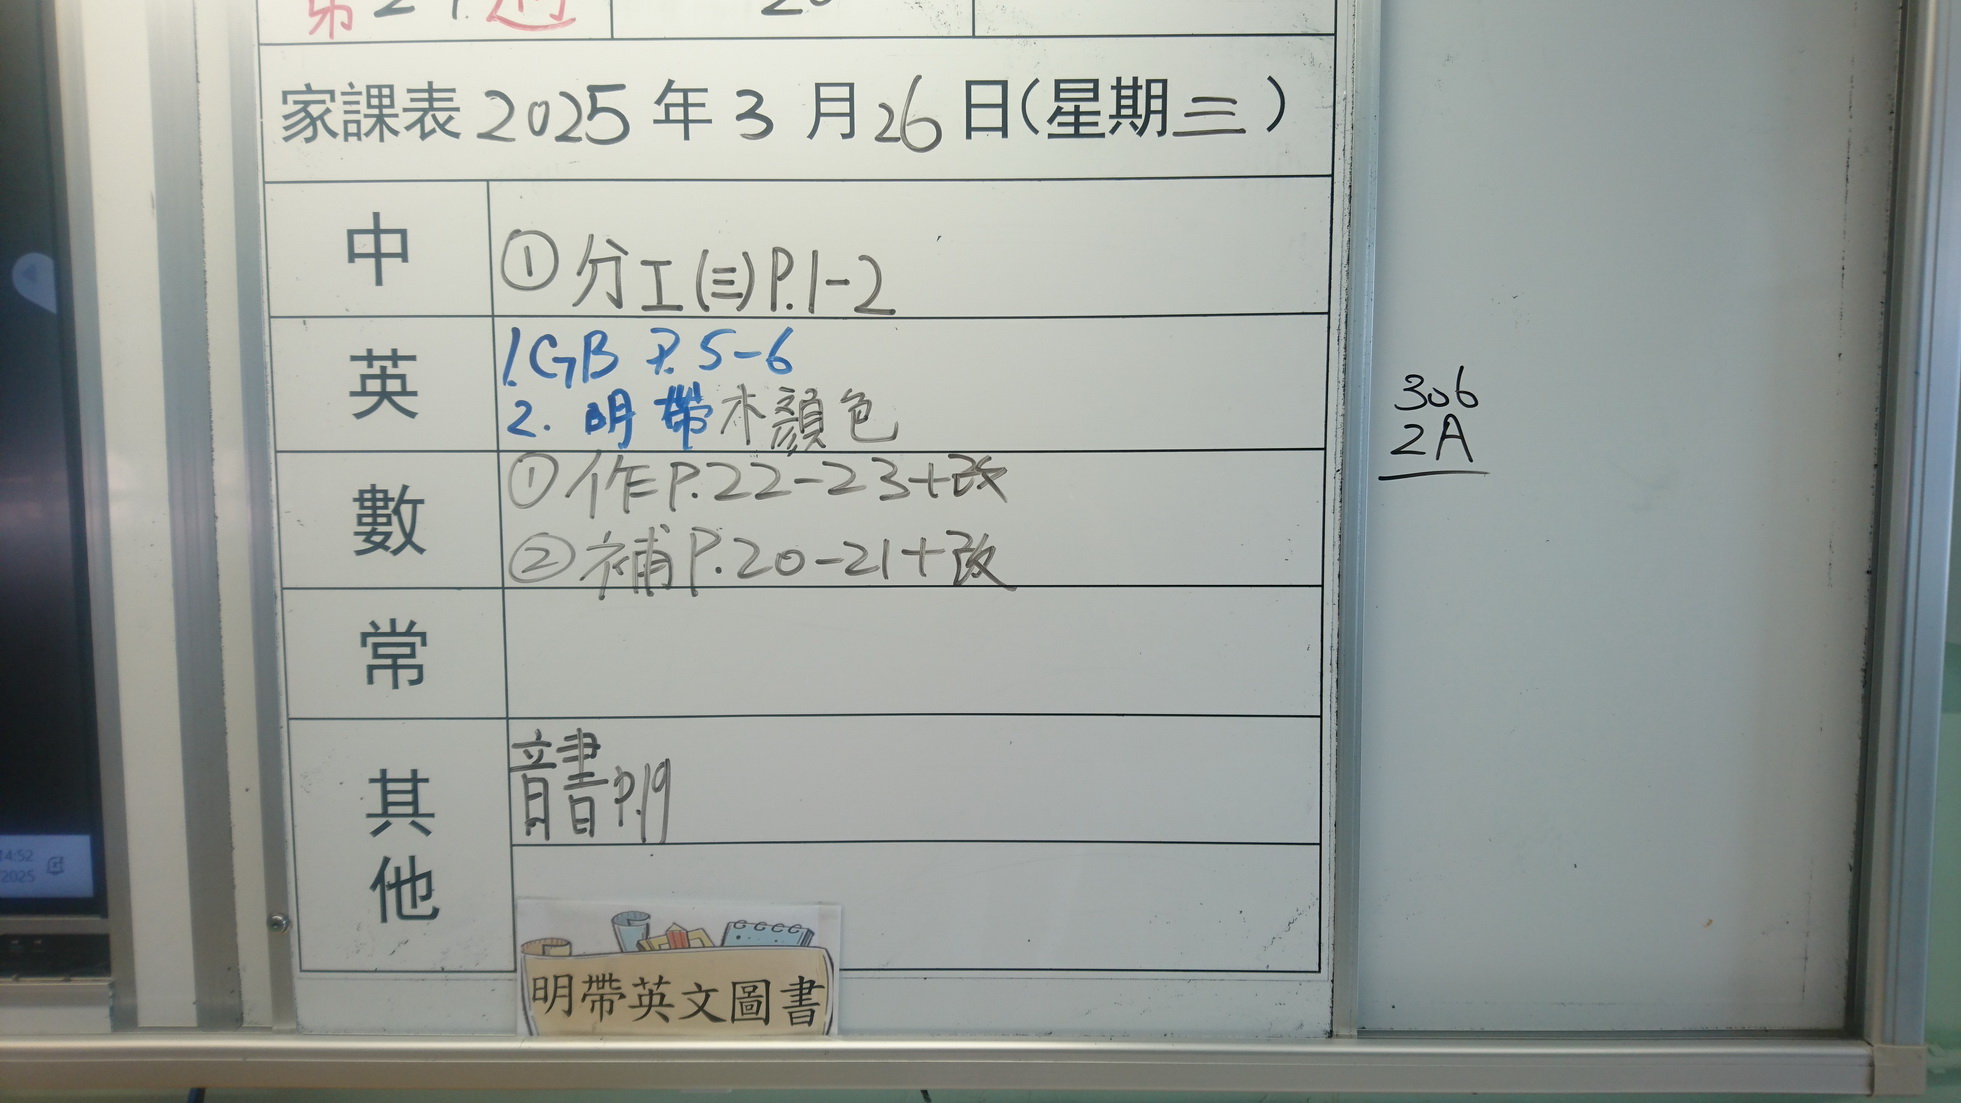 第21週
20
家課表2025年3月26日(星期三)
中
①分工(三)P.1-2
英
1.GB P.5-6
2.明帶木顏色
數
①作P.22-23+改
②補P.20-21+改
常
其他
音書P.19
明帶英文圖書
306
2A
14:52
2025